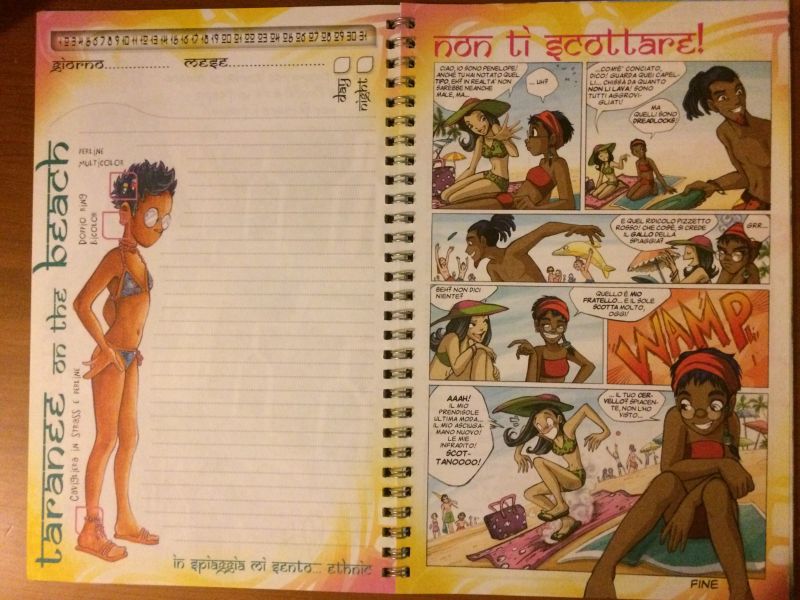 1 2 3 4 5 6 7 8 9 10 11 12 13 14 15 16 17 18 19 20 21 22 23 24 25 26 27 28 29 30 31
giorno............... mese.....................
day
night
taranee on the beach
PERLINE
MULTICOLOR
DOPPIO RING
BICOLOR
CAVIGLIERA IN STRASS E PERLINE
in spiaggia mi sento... ethnic
non ti scottare!
CIAO, IO SONO PENELOPE!
ANCHE TU HAI NOTATO QUEL
TIPO, EH? IN REALTA' NON
SAREBBE NEANCHE
MALE, MA...
... UH?
...COM'E' CONCIATO,
DICO! GUARDA QUEI CAPEL-
LI... CHISSÀ DA QUANTO
NON LI LAVA! SONO
TUTTI AGGROVI-
GLIATI!
MA
QUELLI SONO
DREADLOCKS!
E QUEL RIDICOLO PIZZETTO
ROSSO! CHE COS'È, SI CREDE
IL GALLO DELLA
SPIAGGIA?
GRR...
BEH? NON DICI
NIENTE?
QUELLO È MIO
FRATELLO... E IL SOLE
SCOTTA MOLTO,
OGGI!
WAMP
AAAH!
IL MIO
PRENDISOLE
ULTIMA MODA...
IL MIO ASCIUGA-
MANO NUOVO!
LE MIE
INFRADITO!
SCOT-
TANOOOO!
... IL TUO CER-
VELLO? SPIACEN-
TE, NON L'HO
VISTO...
FINE